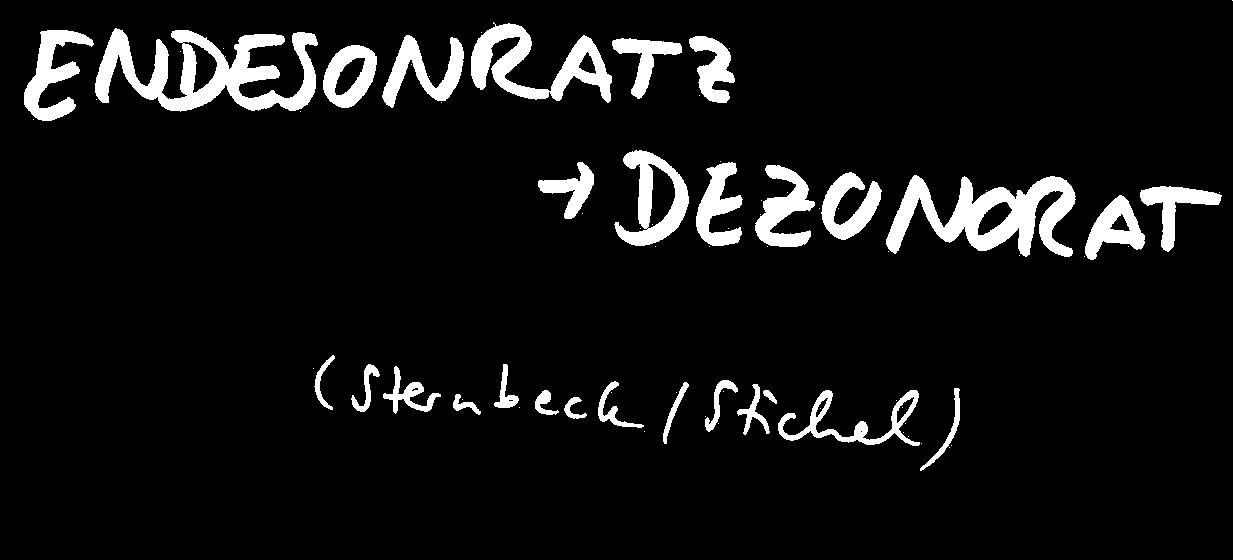 ENDESONRATZ
→ DEZONORAT
(Sternbeck/Stichel)